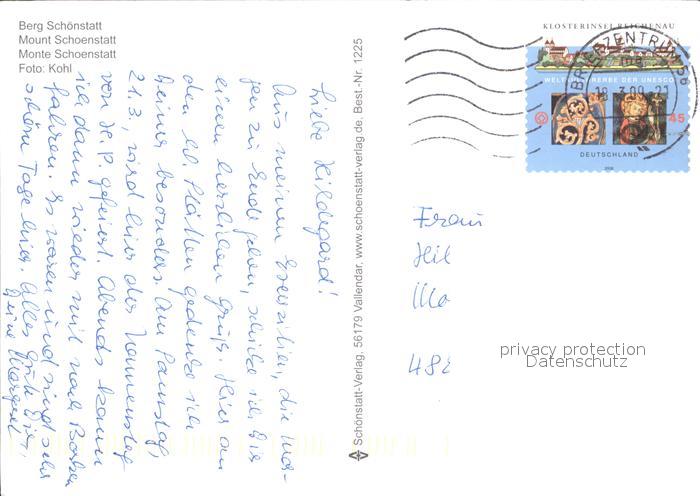 Berg Schönstatt
Mount Schoenstatt
Monte Schoenstatt
Foto: Kohl
Liebe Hildegard!
Aus meinen Exerzitien, die mor-
gen zu Ende gehen, schicke ich Dir
einen herzlichen Gruß. Hier an
den hl. Stätten gedenke ich
Deiner besonders. Am Samstag,
21.3. wird hier der Namenstag
von H. P. gefeiert. Abends kann
ich dann wieder mit nach
fahren. Es waren und sind sehr
schöne Tage hier. Alles Gute Dir,
Deine Margret
Schönstatt-Verlag, 56179 Vallendar. www.schoenstatt-verlag.de. Best.-Nr. 1225
KLOSTERINSEL REICHENAU
WELTKULTURERBE DER UNESCO
45
DEUTSCHLAND
2008
BRIEFZENTRUM 56
18.3.09-21
Frau
Hil
482
privacy protection
Datenschutz